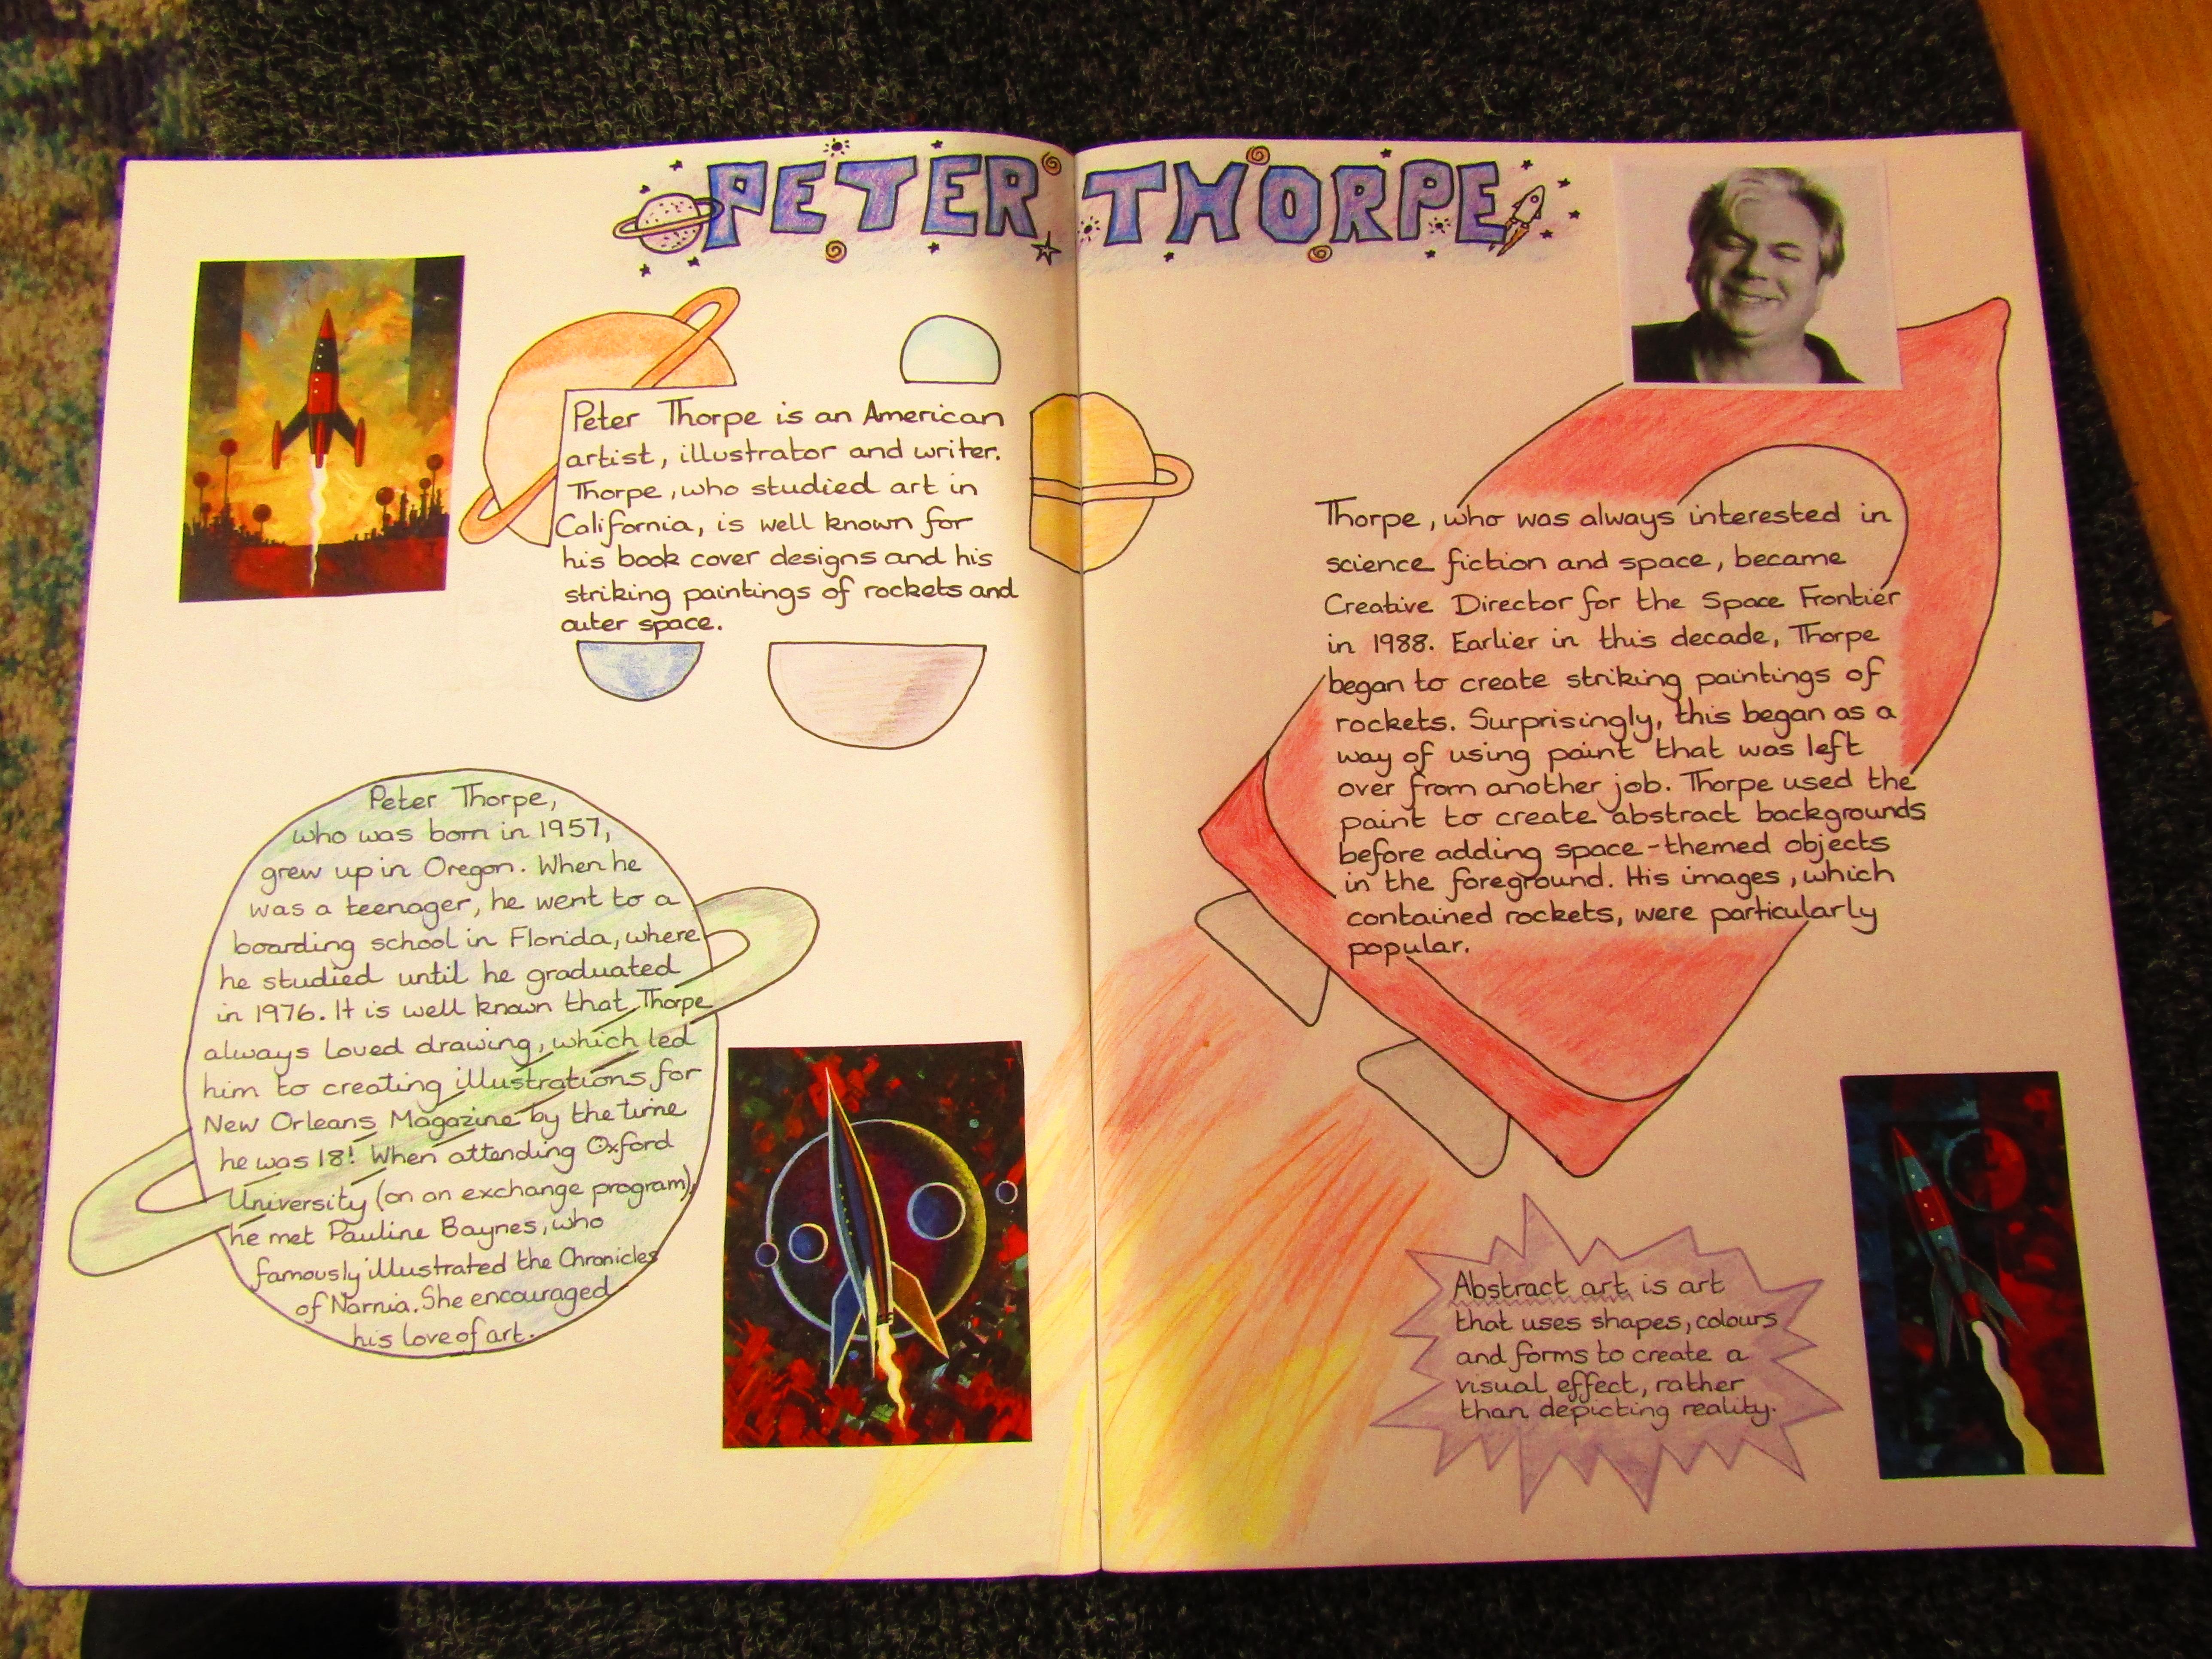 PETER THORPE
Peter Thorpe is an American
artist, illustrator and writer.
Thorpe, who studied art in
California, is well known for
his book cover designs and his
striking paintings of rockets and
outer space.
Peter Thorpe,
who was born in 1957,
grew up in Oregon. When he
was a teenager, he went to a
boarding school in Florida, where
he studied until he graduated
in 1976. It is well known that Thorpe
always loved drawing, which led
him to creating illustrations for
New Orleans Magazine by the time
he was 18! When attending Oxford
University (on an exchange program),
he met Pauline Baynes, who
famously illustrated the Chronicles
of Narnia. She encouraged
his love of art.
Thorpe, who was always interested in
science fiction and space, became
Creative Director for the Space Frontier
in 1988. Earlier in this decade, Thorpe
began to create striking paintings of
rockets. Surprisingly, this began as a
way of using paint that was left
over from another job. Thorpe used the
paint to create abstract backgrounds
before adding space-themed objects
in the foreground. His images, which
contained rockets, were particularly
popular.
Abstract art is art
that uses shapes, colours
and forms to create a
visual effect, rather
than depicting reality.